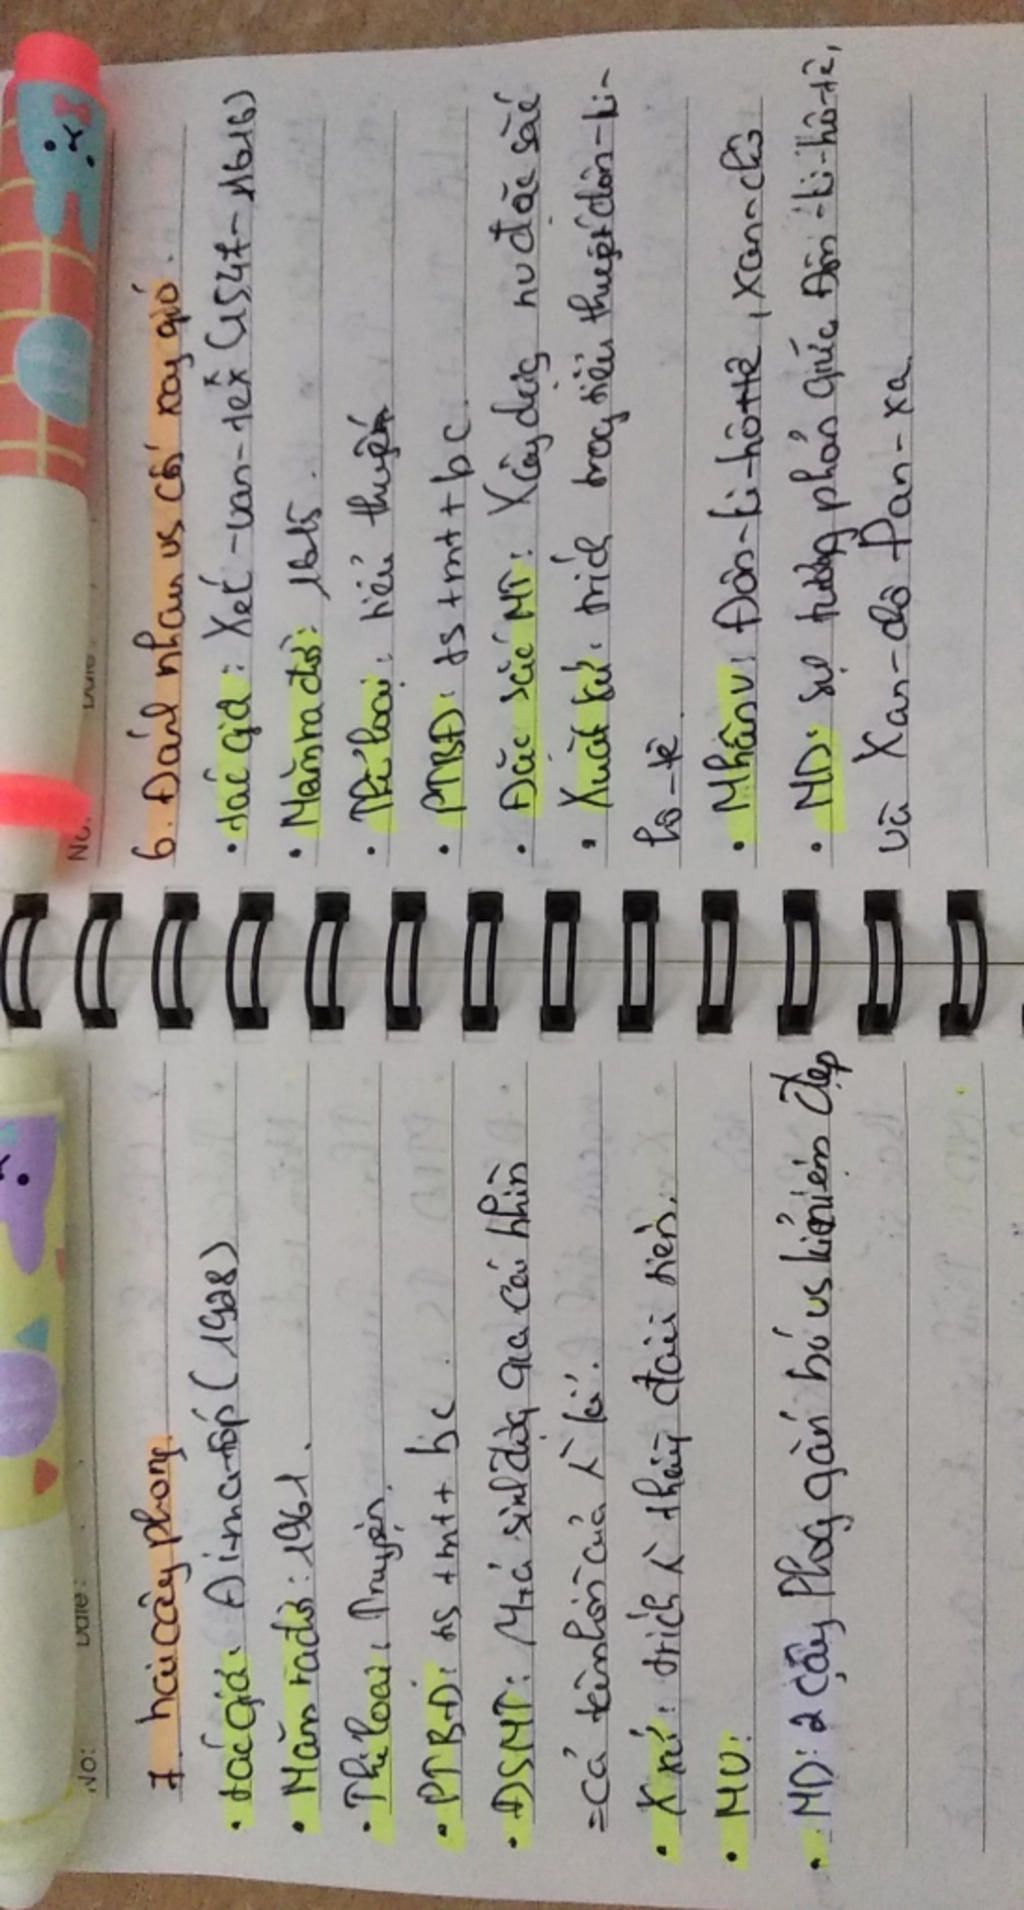 No:
Date:
6. Đánh nhau vs cối xay gió.
• tác giả: Xéc-van-tex (1547-1616)
• Năm ra đời: 1615.
• Thể loại: tiểu thuyết
• PTBĐ: ts + mt + bc
• Đặc sắc NT: Xây dựng nv đặc sắc
• Xuất xứ: trích trong tiểu thuyết đôn-ki-
hô-tê.
• Nhân v: Đôn-ki-hô-tê, xan-chô
• ND: sự tương phản giữa Đôn-ki-hô-tê,
và Xan-chô Pan-xa
No:
Date:
7. hai cây phong.
• tác giả: Ai-ma-tốp (1928)
• Năm ra đời: 1961.
• Thể loại: Truyện.
• PTBĐ: ts + mt + bc.
• ĐSNT: M tả sinh động qua cái nhìn
= cả tâm hồn của
• X xứ: trích thầy đầu tiên.
• NV:
• ND: 2 cây phong gắn bó vs kỉ niệm đẹp